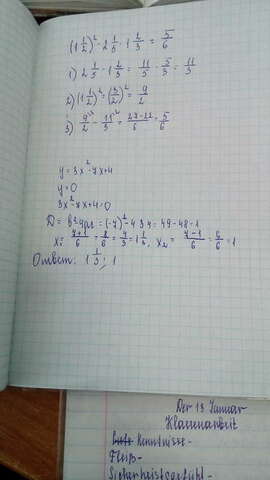 (1 1/2)² - 2 1/5 · 1 2/3 = 5/6
1) 2 1/5 · 1 2/3 = 11/5 · 5/3 = 11/3
2) (1 1/2)² = (3/2)² = 9/2
3) 9/2 - 11/3 = 27-22/6 = 5/6
y = 3x² - 7x + 4
y = 0
3x² - 7x + 4 = 0
D = b² 4ac = (-7)² - 4 3 4 = 49 - 48 - 1
x₁ = 7+1/6 = 8/6 = 4/3 = 1 1/3, x₂ = 7-1/6 = 6/6 = 1
Ответ: 1 1/3; 1
Der 13 Januar
Klassenarbeit
Kenntnisse-
Fleiß-
Sicherheitsgefühl-